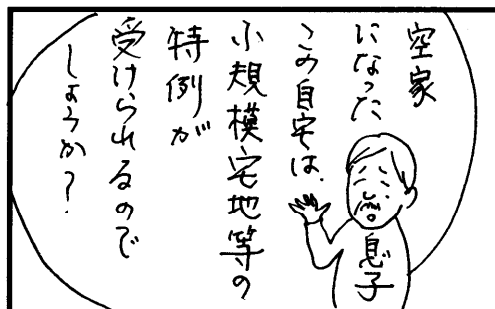 空家
になった
この自宅は、
小規模宅地等の
特例が
受けられるので
しょうか？
息子